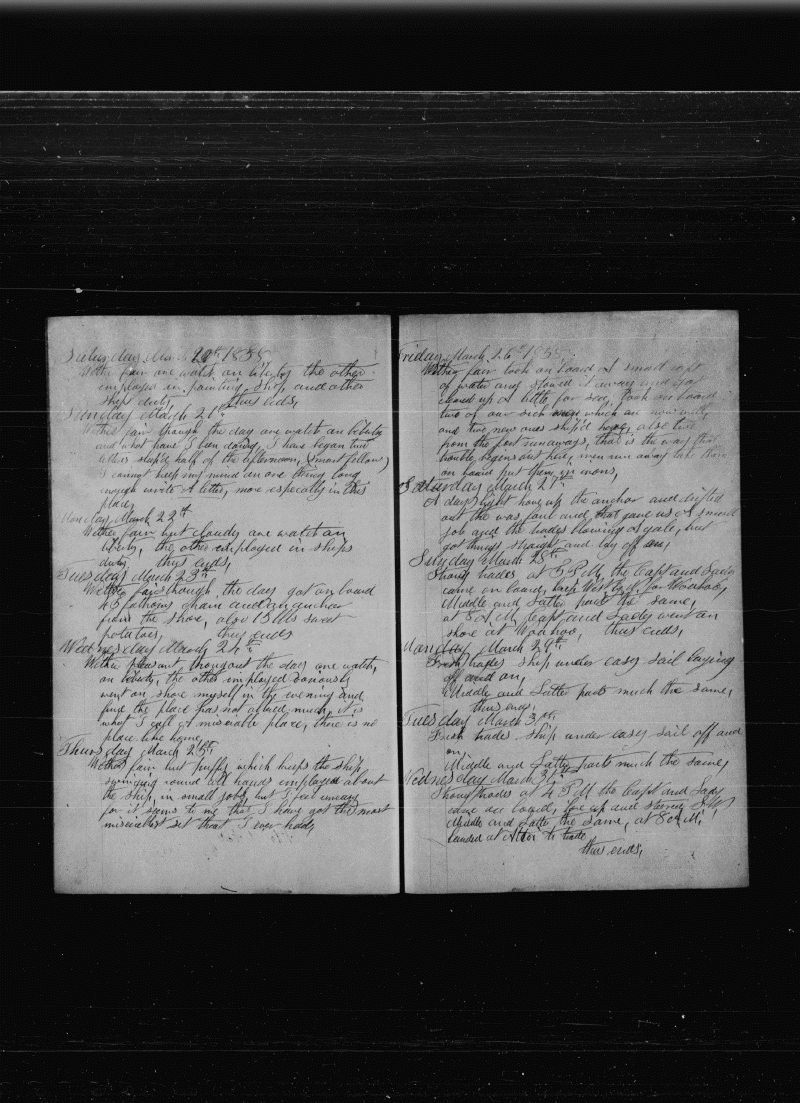 Saturday March 20th 1858
Wether fair one watch on liberty the other
employed in painting ship and other
ships duty, thus ends,
Sunday March 21st
Wether fair through the day one watch on liberty
and what have I ben doing, I have began two
letters stupid half of the afternoon, (smart fellow)
I cannot keep my mind on one thing long
enough write A letter, more especially in this
place,
Monday March 22th
Wether fair but cloudy one watch on
liberty, the other employed in ships
duty thus ends,
Tuesday March 23th
Wether fair through the day got on board
45 fathoms chain and an anchor
from the shore, also Bbls sweet
potatoes, thus ends
Wednesday March 24th
Wether pleasant throughout the day one watch,
on liberty, the other imployed variously
went on shore myself in the evening and
find the place has not altered much, it is
what I call A miserable place, there is no
place like home,
Thursday March 25th
Wether fair but puffy which keeps the ship
swinging round all hands employed about
the ship, in small jobs, but I feel uneasy
for it seems to me that I have got the most
miserablest set that I ever had,
Friday March 26th 1858
Wether fair took on board A small raft
of water and stowed it away and got
cleared up A little for sea, took on board
two of our sick men which are now well
and two new ones ship'd here, also two
from the fort runaways, that is the way that
trouble begins out here, men run away take them
on board put them in irons,
Saturday March 27th
A day light hove up the anchor and drifted
out the was foul and that gave us A small
job and the trades blowing A gale, but
got things straight and lay off on,
Sunday March 28th
Strong trades at 5 P.M. the Capt and Lady
came on board, kept West by N. for Woahoo,
Middle and Latter parts the same,
at 8 A.M. Capt and Lady went on
shore at Woahoo, thus ends,
Monday March 29th
Fresh trades ship under easy sail laying
off and on,
Middle and Latter parts much the same,
thus ends,
Tuesday March 30th
Fresh trades, ship under easy sail off and
on,
Middle and Latter parts much the same,
Wednesday March 31st
Strong trades at 4 P.M. the Capt and Lady
came on board, and steered S.W.
Middle and Latter the same, at 8 A.M.
landed at to trade
thus ends,